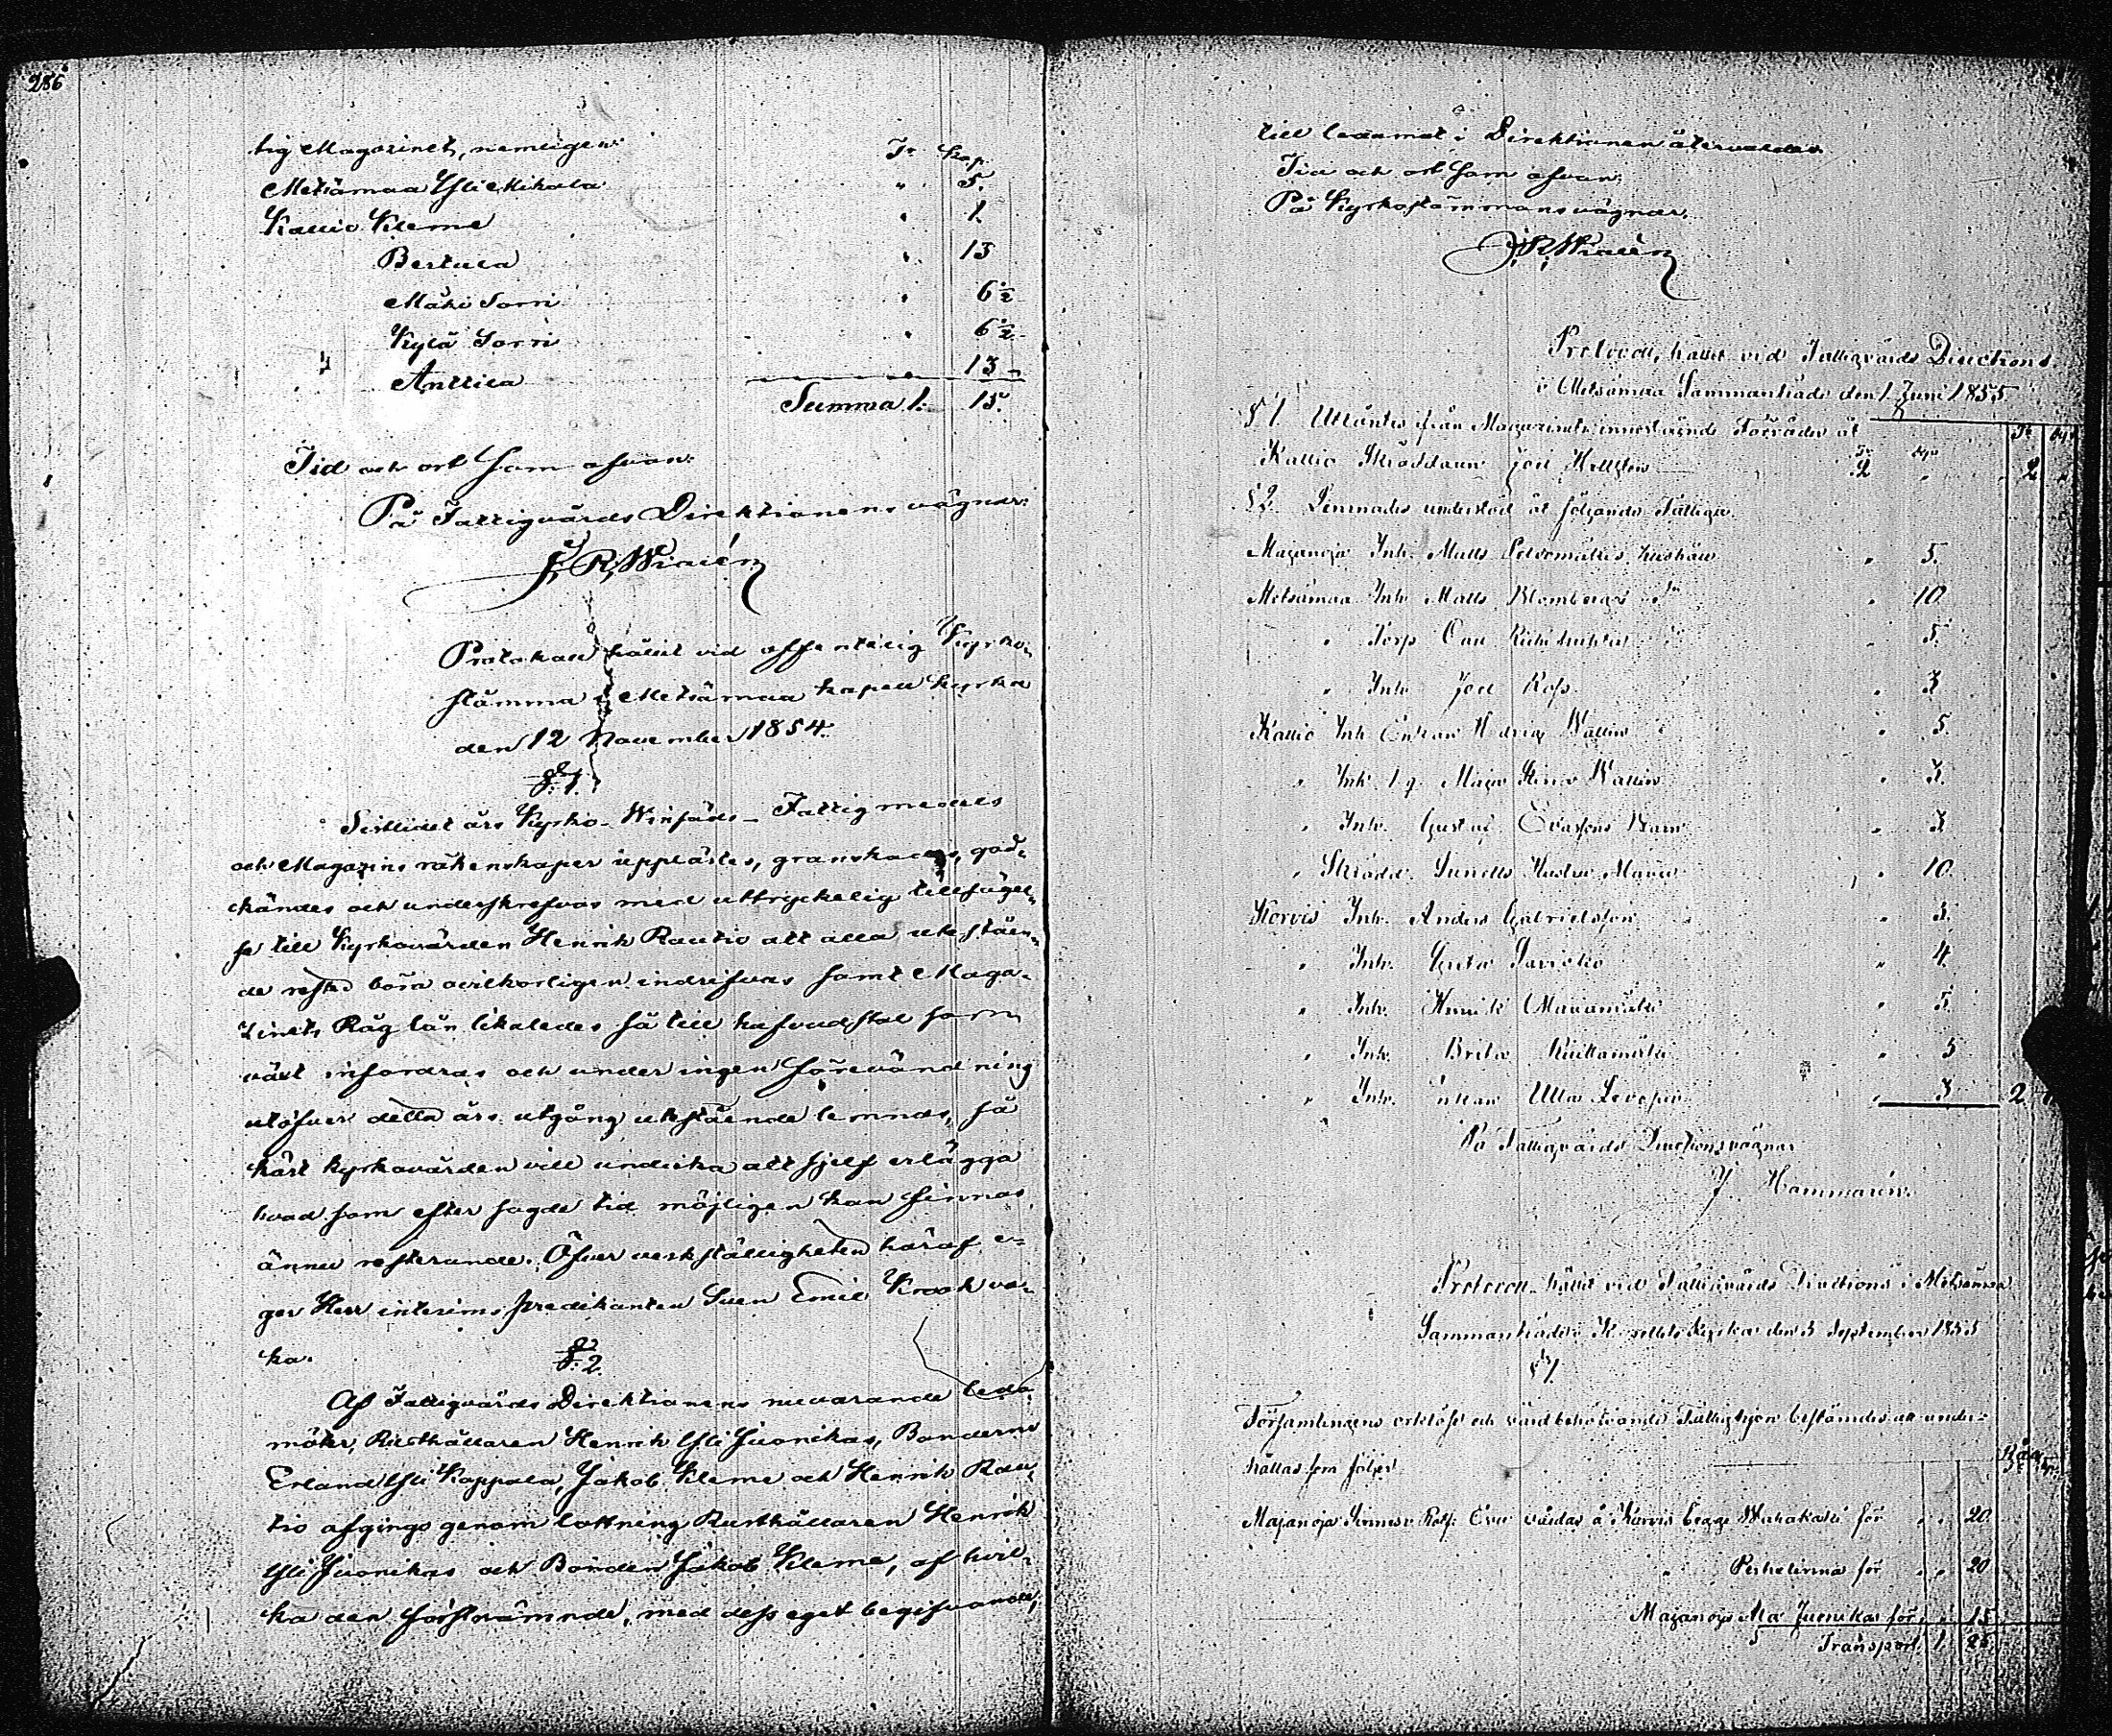 286
tig Magazinet, nemligen: Tr Kap.
Metsämaa Yli Mikola " 5.
Kallio Kleme " 1.
Bertula " 13
Mäki Sorri " 6½
Kylä Sorri " 6½
" Anttila " 13
Summa 1: 15.
Tid och ort som ofvan:
På Fattigvårds Direktionens vägnar:
J. R. Widlén
Protokoll hållit vid offentelig Kyrko-
stämma i Metsämaa kapell kyrka
den 12 November 1854.
§ 1.
Sistlidet års Kyrko- Winfäds- Fattigmedels
och Magazins räkenskaper upplästes, granskades, god-
kändes och underskrefvos med uttryckelig tillsägel-
se till Kyrkovärden Henrik Rautio att alla uteståen-
de rester böra ovilkorligen indrifvas samt Maga-
zinets Råg lån likaledes så till hufvudstol som
växt infordras och under ingen förevändning
utöfver detta års utgång utestående lemnas, så
kärt kyrkovärden vill undvika att sjelf erlägga
hvad som efter sagde tid möjligen kan finnas
ännu resterande. Öfver verkställigheten häraf e-
ger Herr interims predikanten Sven Emil Krook va-
ka.
§ 2.
Af Fattigvårds Direktionens nuvarande leda-
möter, Rusthållaren Henrik Yli Juonikas, Bonderne
Erland Yli Kappala, Jakob Kleme och Henrik Rau-
tio afgingo genom lottning Rusthållaren Henrik
Yli Juonikas och Bonden Jakob Kleme, af hvil-
ka den förstnämnde, med dess eget begifvande,
till ledamot i Direktionen återvaldes.
Tid och ort som ofvan:
På Kyrkostämmans vägnar,
J. R. Widlén
Protocoll, hållit vid Fattigvårds Directions
i Metsämaa Sammanträde den 1 Juni 1855
§ 1. Utlåntes från Magazinets innestående Förråder åt
Kallio Skräddaren Joel Hellsten 2 " 2 "
§ 2. Lemnades understöd åt följande Fattiga.
Majanoja Inh. Matts hustru " 5.
Metsämaa Inh. Matts Blombergs " 10
" Torp. " 5.
" Inh. Joel Ross " 3
Kallio Inh. Enkan Hedvig Wallin " 5.
" Inh. Maja Stina Wallin " 3.
" Inh. Gustaf Evasfons Barn " 3
" Skrädd. Sundells Hustru Maria " 10.
Korvis Inh. Anders Gabrielsson " 3.
" Inh. Greta " 4.
" Inh. Henrik " 5.
" Inh. Brita " 5
" Inh. enkan Ulla " 3 2
På Fattigvårds Directions vägnar
J. Hammarén.
Protocoll hållit vid Fattigvårds Directions i Metsämaa
Sammanträde i kyrka den 3 September 1855
§ 1
Församlingens orklösa och vård behöfvande Fattighjon bestämdes att under-
hållas som följer
Majanoja Eva vårdas å Korvis begge för " " 20
" Perheenmaa för " " 20
Majanoja Ala Juonikas för " " 15
Transport 1 25